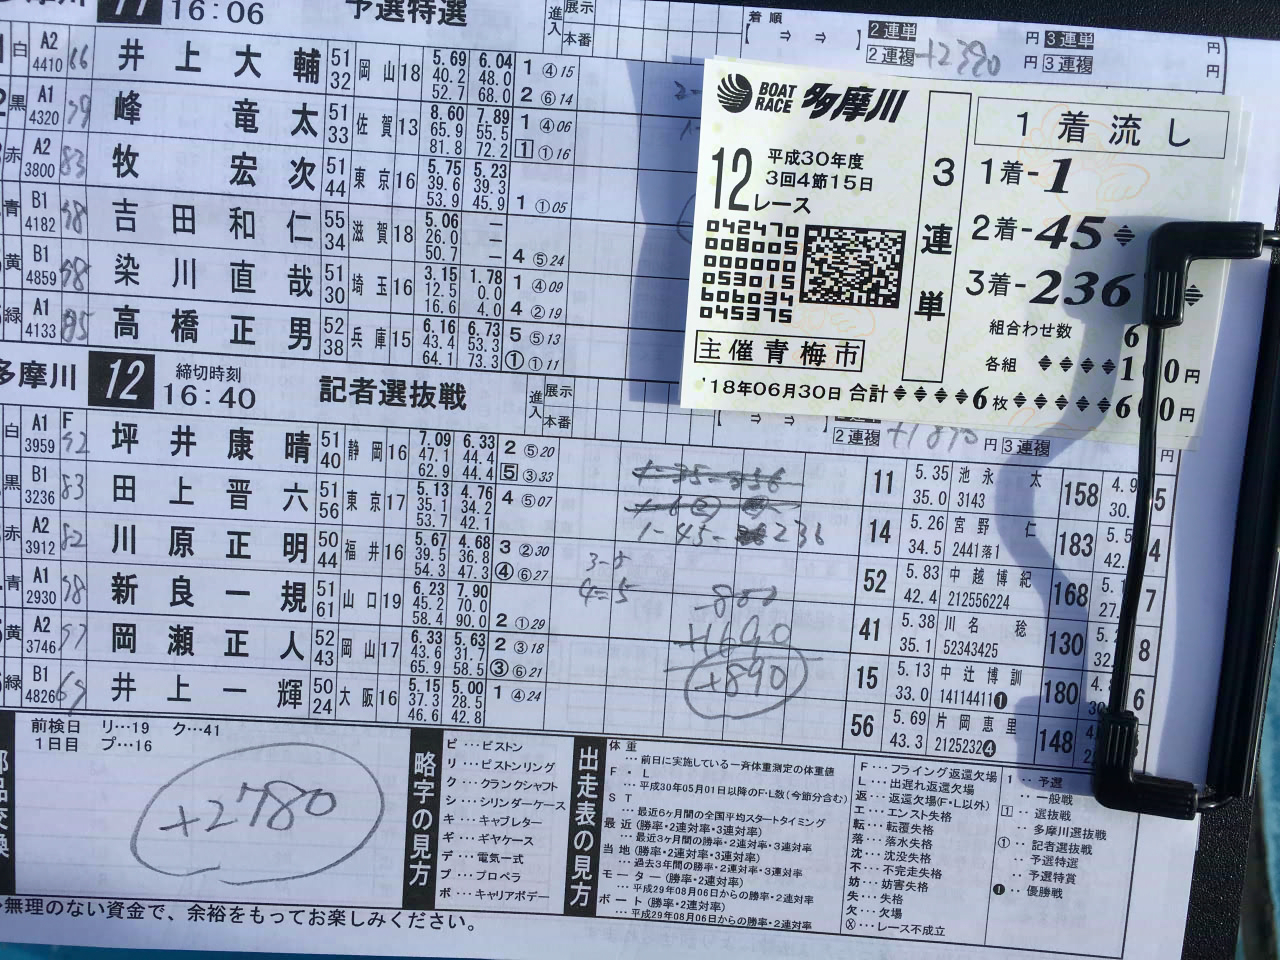 多摩川 11 16:06 予選特選
進入 展示 本番
着順
【 ⇒ ⇒ 】
2連単 円 3連単 円
2連複 +2390 円 3連複 円
白 A2 4410 井上大輔 51 32 岡山 18 5.69 40.2 52.7 6.04 48.0 68.0 1 ④15 2 ⑥14
黒 A1 4320 峰竜太 51 33 佐賀 13 8.60 65.9 81.8 7.89 55.5 72.2 1 ④06 1 ①16
赤 A2 3800 83 牧宏次 51 44 東京 16 5.75 39.6 53.9 5.23 39.3 45.9 1 ①05
青 B1 4182 吉田和仁 55 34 滋賀 18 5.06 26.0 50.7 — — — 4 ⑤24
黄 B1 4859 染川直哉 51 30 埼玉 16 3.15 12.5 16.6 1.78 0.0 4.0 1 ④09 4 ②19
緑 A1 4133 高橋正男 52 38 兵庫 15 6.16 43.4 64.1 6.73 53.3 73.3 5 ⑤13 ① ①11
BOAT RACE 多摩川
平成30年度
3回4節15日
12レース
042470
008005
000000
053015
606034
045375
主催青梅市
3連単
1着流し
1着-1
2着-45
3着-236
組合わせ数 6
各組 100円
'18年06月30日 合計 6枚 600円
多摩川 12 締切時刻 16:40 記者選抜戦
進入 展示 本番
2連複 +1890 円 3連複 円
白 A1 F 3959 坪井康晴 51 40 静岡 16 7.09 47.1 62.9 6.33 44.4 44.4 2 ⑤20 5 ③33
黒 B1 3236 83 田上晋六 51 56 東京 17 5.13 35.1 53.7 4.76 34.2 42.1 4 ⑤07
赤 A2 3912 82 川原正明 50 44 福井 16 5.67 39.5 54.3 4.68 36.8 47.3 3 ②30 ④ ⑥27
青 A1 2930 新良一規 51 61 山口 19 6.23 45.2 58.4 7.90 70.0 90.0 2 ①29
黄 A2 3746 岡瀬正人 52 43 岡山 17 6.33 43.6 65.9 5.63 31.7 58.5 2 ③18 ③ ⑥21
緑 B1 4826 井上一輝 50 24 大阪 16 5.15 37.3 46.6 5.00 28.5 42.8 1 ④24
1-45-236
4=5
-800
+1690
+890
11 5.35 35.0 池永太 3143 158
14 5.26 34.5 宮野仁 2441落1 183
52 5.83 42.4 中越博紀 212556224 168
41 5.38 35.1 川名稔 52343425 130
15 5.13 33.0 中辻博訓 14114411❶ 180
56 5.69 43.3 片岡恵里 2125232❹ 148
前検日 リ…19 ク…41
1日目 プ…16
+2780
略字の見方
ピ…ピストン
リ…ピストンリング
ク…クランクシャフト
シ…シリンダーケース
キ…キャブレター
ギ…ギヤケース
デ…電気一式
プ…プロペラ
ボ…キャリアボデー
出走表の見方
体重
…前日に実施している一斉体重測定の体重値
F・L
…平成30年05月01日以降のF・L数(今節分含む)
ST
…最近6ヶ月間の全国平均スタートタイミング
最近(勝率・2連対率・3連対率)
…最近3ヶ月間の勝率・2連対率・3連対率
当地(勝率・2連対率・3連対率)
…過去3年間の勝率・2連対率・3連対率
モーター(勝率・2連対率)
…平成29年08月06日からの勝率・2連対率
ボート(勝率・2連対率)
…平成29年08月06日からの勝率・2連対率
F…フライング返還欠場
L…出遅れ返還欠場
返…返還欠場(F・L以外)
エ…エンスト失格
転…転覆失格
落…落水失格
沈…沈没失格
不…不完走失格
妨…妨害失格
失…失格
欠…欠場
Ⓧ…レース不成立
1…予選
…一般戦
1…選抜戦
…多摩川選抜戦
①…記者選抜戦
…予選特選
…予選特賞
❶…優勝戦
無理のない資金で、余裕をもってお楽しみください。